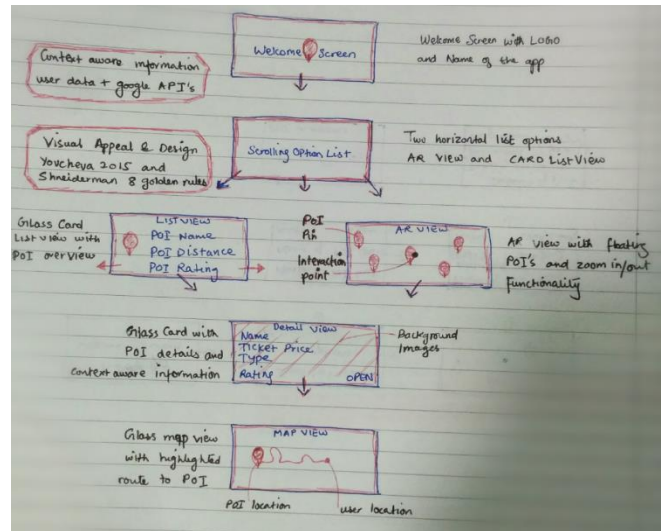 Welcome Screen
Welcome Screen with LOGO
and Name of the app
Context aware information
user data + google API's
Visual Appeal & Design
Yovcheva 2015 and
Shneiderman 8 golden rules
Scrolling Option List
Two horizontal list options
AR VIEW and CARD List View
Glass Card
List view with
PoI overview
LIST VIEW
PoI Name
PoI Distance
PoI Rating
PoI
Pin
Interaction
point
AR VIEW
AR view with floating
POI's and zoom in/out
Functionality
Glass Card with
PoI details and
context aware information
Detail View
Name
Ticket Price
Type
Rating
OPEN
Background
Images
Glass map view
with highlighted
route to PoI
MAP VIEW
PoI location
user location